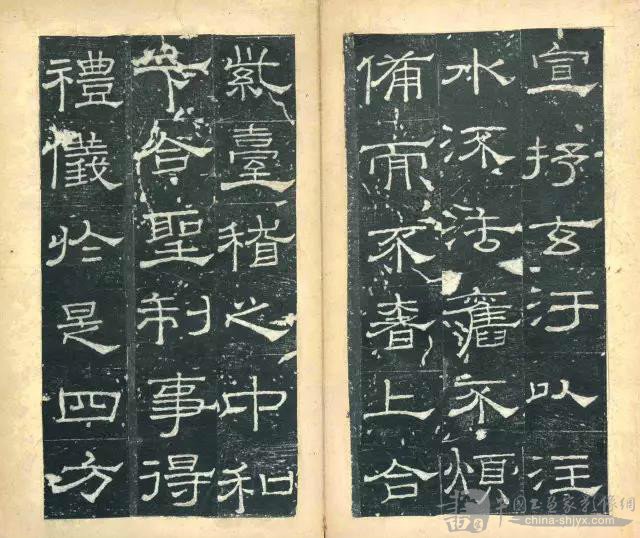 宣抒玄汙以注
水流法舊不煩
備而不奢上合
紫臺稽之中和
下合聖制事得
禮儀於是四方
中国书画家影像網
china-shjyx.com